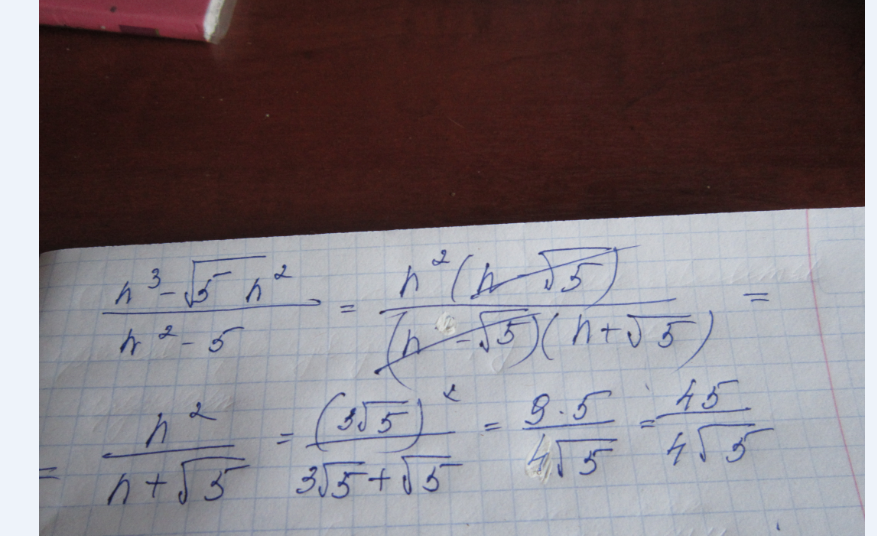 n³ - √5 n² / n² - 5 = n² (n - √5) / (n - √5)(n + √5) =
= n² / n + √5 = (3√5)² / 3√5 + √5 = 9 · 5 / 4√5 = 45 / 4√5